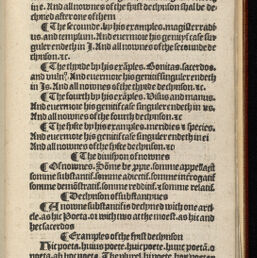 ine. And all nownes of the fyrst declynson shall be de
clyned after one of them
¶ The seconde. by his examples. magister radi
us. and templum. And euermore his genityf case syn
guler endeth in I. And all nownes of the secounde de
clynson. &c.
¶ The thyrde by his exāples. Bonitas. sacerdos.
And euermore his genitif singuler endeth
in Is. And all nownes of the thyrde declynson. &c.
¶ The fourth by his exāples. Visus and manus.
And euermore his genitif case singuler endeth in vs.
And all nownes of the fourth declynson. &c
¶ The fyfte by his examples. meridies & species.
And euermore his genitif case singuler endeth in ei
And all nownes of the fyfte declynson. &c
¶ The diuision of nownes
¶ Of nownes. Some be ppre. some appellatif
some substantif. some adiectif. some interrogatif
some demōstratif. some redditif. & some relatif.
¶ Declynson of substantyues
¶ A nowne substantif is declyned with one arti
cle. as hic Poeta. or with two at the moost. as hic and
hec sacerdos
¶ Examples of the fyrst declynson
Hic poeta. huius poete. huic poete. hunc poetā. o
poeta. ab hoc poeta. The plurel. hi poete. horum